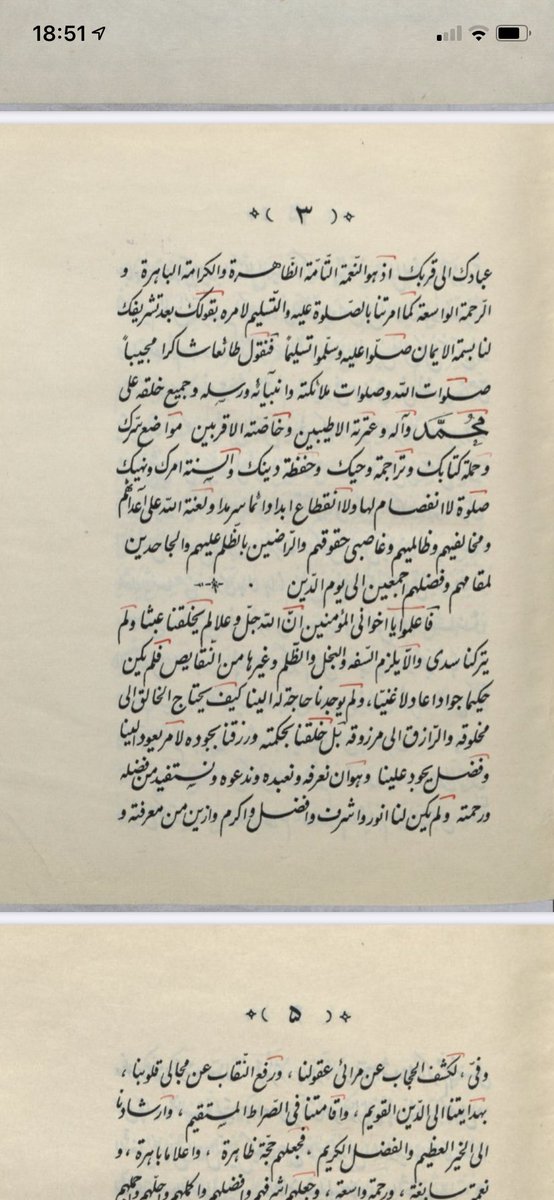 18:51
﴿ ٣ ﴾
عبادك الى قربك اذ هو النّعمة التّامّة الظّاهرة والكرامة الباهرة و
الرّحمة الواسعة كما امرتنا بالصّلوة عليه والتّسليم لامره بقولك بعد تشريفك
لنا بسمة الايمان صلّوا عليه وسلّموا تسليماً فنقول طائعا شاكرا مجيباً
صلوات اللّه وصلوات ملائكته وانبيائه ورسله وجميع خلقه على
محمّد وآله وعترته الاطيبين وخاصّته الاقربين مواضع سرّك
وحملة كتابك وتراجمة وحيك وحفظة دينك والسنة امرك ونهيك
صلوة لا انفصام لها ولا انقطاع ابدا دائما سرمدا ولعنة اللّه على اعدائهم
ومخالفيهم وظالميهم وغاصبى حقوقهم والرّاضين بالظّلم عليهم والجاحدين
لمقامهم وفضلهم اجمعين الى يوم الدّين
فاعلموا يا اخوانى المؤمنين انّ اللّه جلّ وعلا لم يخلقنا عبثا ولم
يتركنا سدى والّا يلزم السّفه والبخل والظّلم وغيرها من النّقايص فلم يكن
حكيما جوادا عادلا غنيّا، ولم يوجدنا حاجة له الينا كيف يحتاج الخالق الى
مخلوقه والرّازق الى مرزوقه بل خلقنا بحكمته ورزقنا بجوده لامر يعود الينا
وفضل يجود علينا وهو ان نعرفه ونعبده وندعوه ونستفيد من فضله
ورحمته ولم يكن لنا انور واشرف وافضل واكرم وازين من معرفته و
﴿ ۵ ﴾
وفىّ، لكشف الحجاب عن مرائى عقولنا، ورفع النّقاب عن مجالى قلوبنا،
بهدايتنا الى الدّين القويم، واقامتنا فى الصّراط المستقيم، وارشادنا
الى الخير العظيم والفضل الكريم، فجعلهم حجّة ظاهرة، واعلاما باهرة، و
نعمة سابغة، ورحمة واسعة، وجعلهم اشرفهم وافضلهم واكملهم